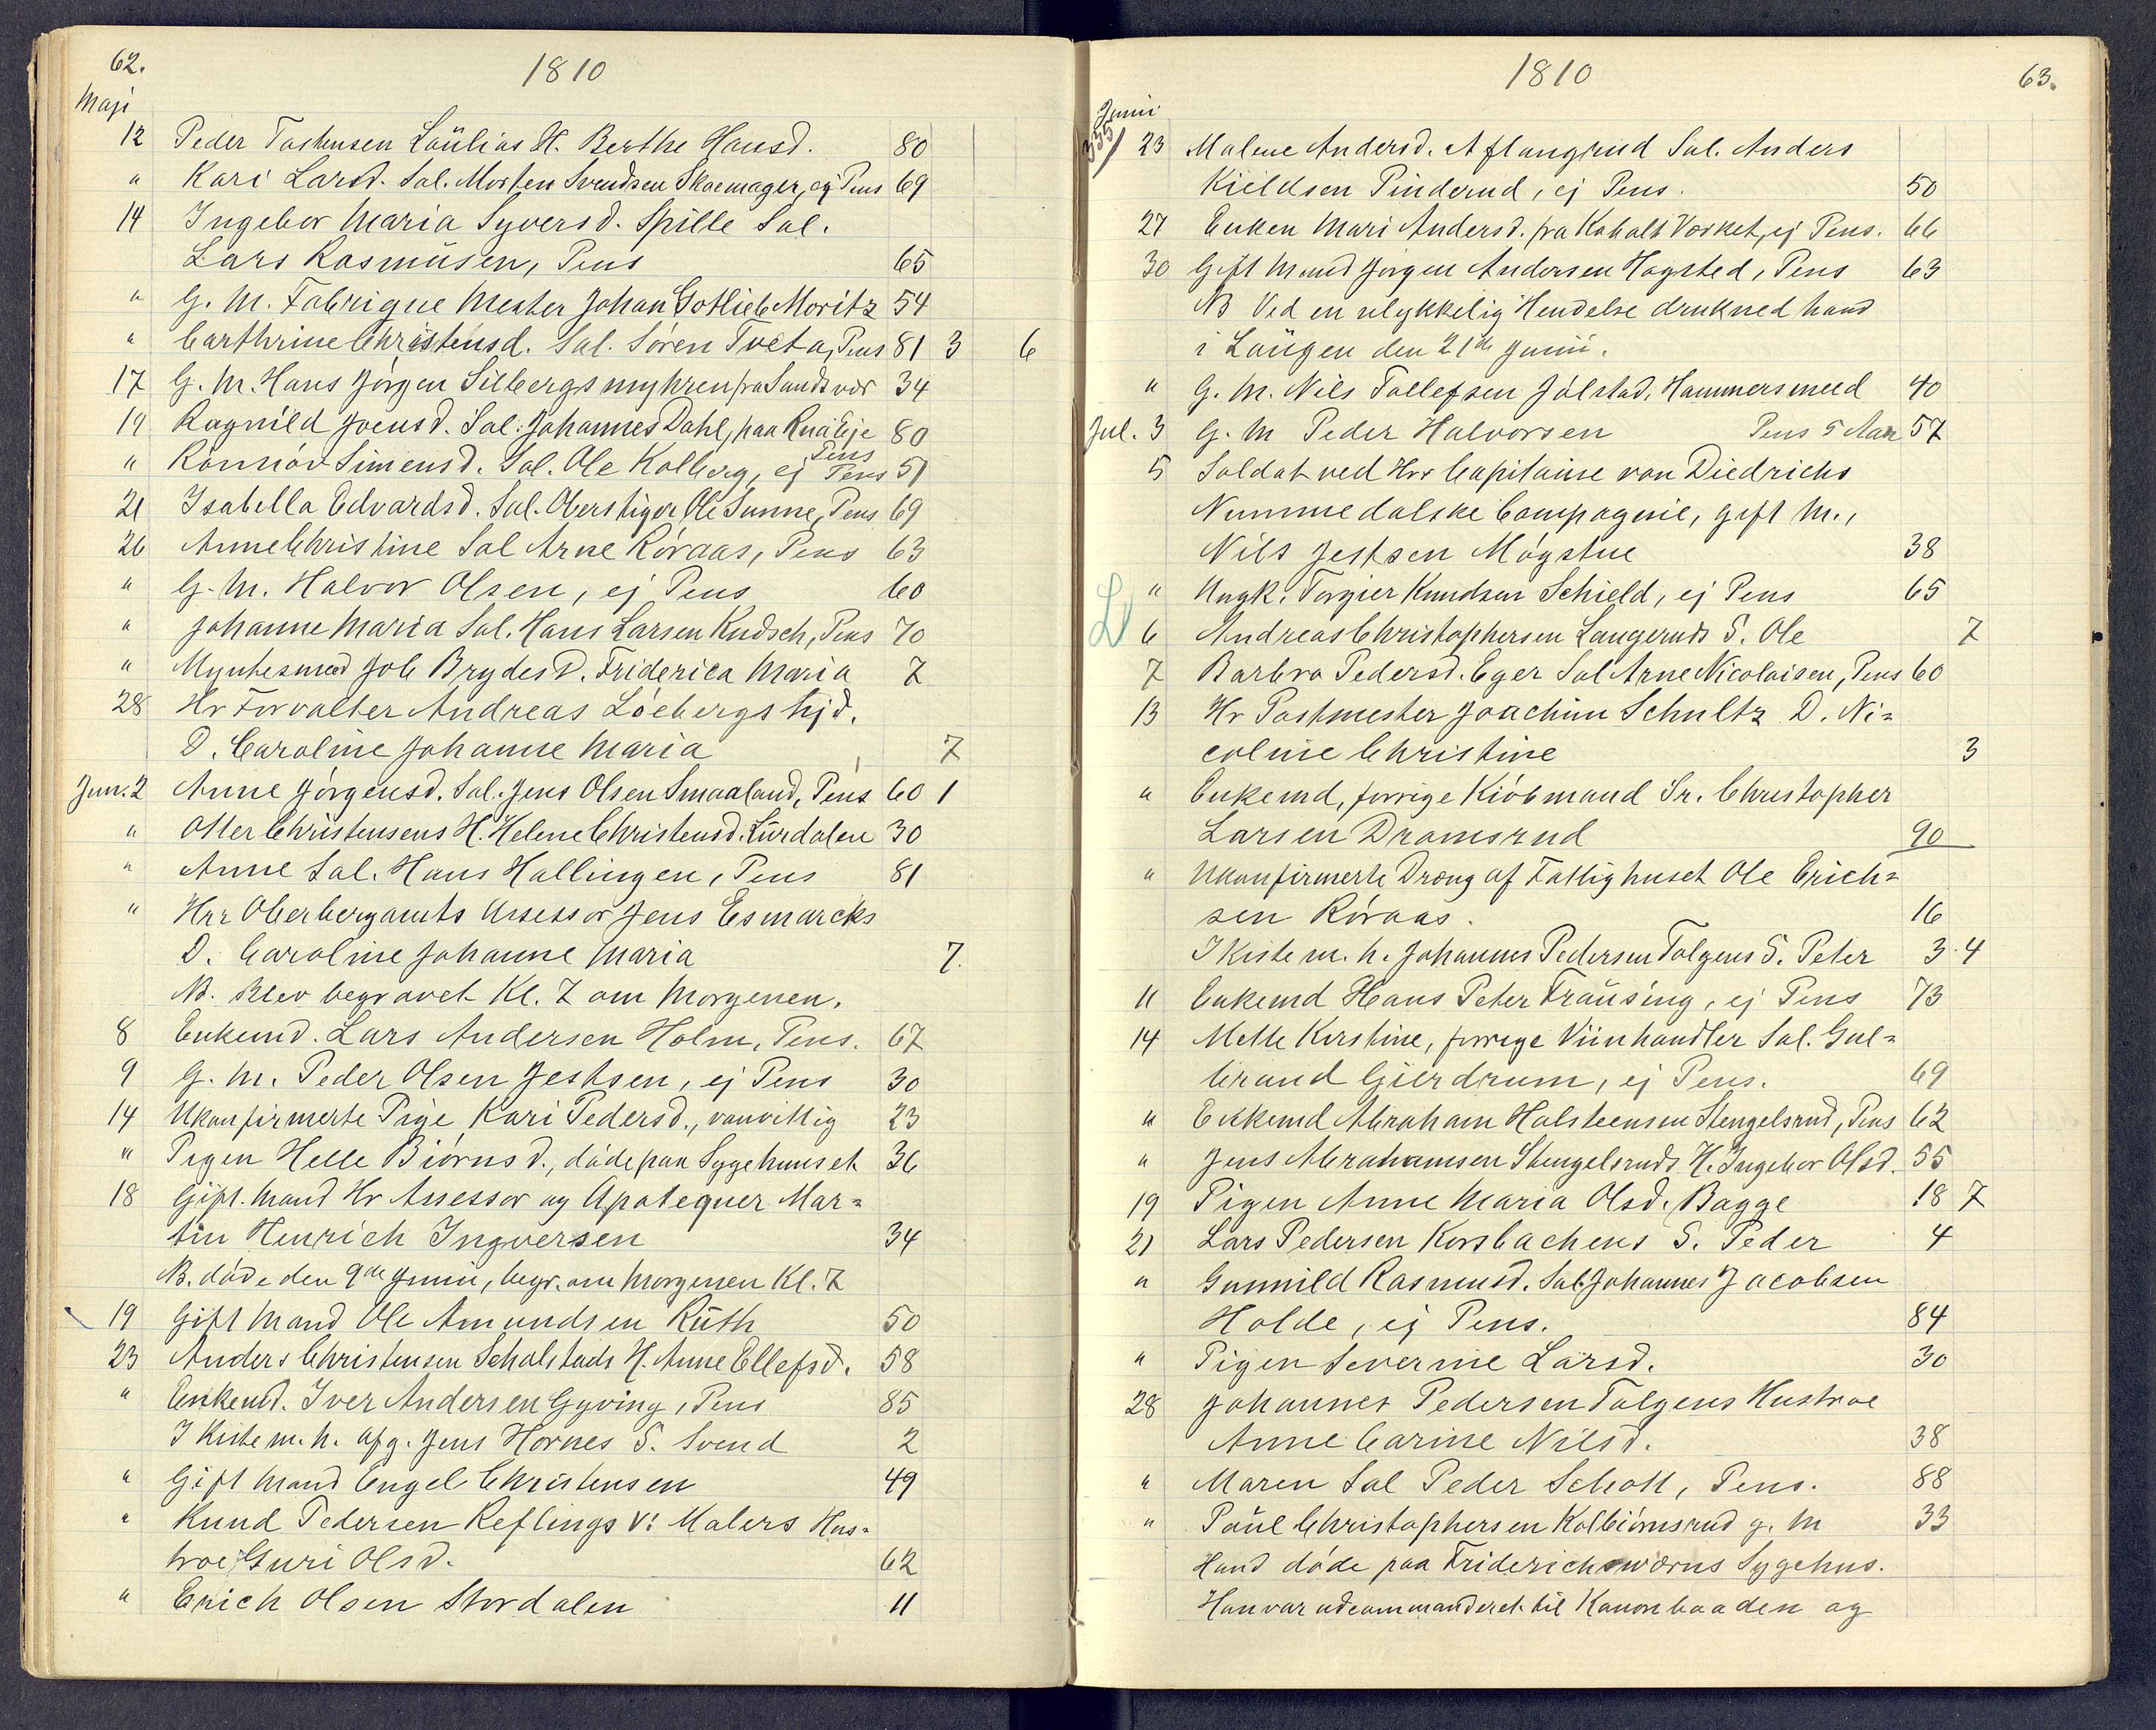 62.
1810
Maji
12 Peder Laülias H. Berthe Hansd. 80
" Kari Larsd. Sal. Morten Svendsen Skoemager, ej Pens 69
14 Ingebor Maria Syversd. Spille Sal.
Lars Rasmüsen, Pens 65
" G. M. Fabrique Mester Johan Gotlieb Moritz 54
" Carthrine Christensd. Sal. Sören Tveta, Pens 81 3 6
17 G. M. Hans Jörgen Silbergsmyhren fra Sandsvær 34
19 Ragnild Joensd. Sal. Johannes Dahl, paa Eje Pens 80
" Rönnöv Simensd. Sal. Ole Kolberg, ej Pens 51
21 Isabella Edvardsd. Sal. Oberstiger Ole Sunne, Pens 69
26 Anne Christine Sal Arne Röraas, Pens 63
" G. M. Halvor Olsen, ej Pens 60
" Johanne Maria Sal. Hans Larsen Kudsch, Pens 70
" Myntesmed Job Brydes D. Friderica Maria 7
28 Hr Forvalter Andreas Löebergs hjd.
D. Caroline Johanne Maria 7
Jun. 2 Anne Jörgensd. Sal. Jens Olsen Smaaland, Pens 60 1
" Otter Christensens H. Helene Christensd. Lürdalen 30
" Anne Sal. Hans Hallingen, Pens 81
" Hrr Oberbergamts Assessor Jens Esmarcks
D. Caroline Johanne Maria 7.
NB. Blev begravet Kl. 7 om Morgenen.
8 Enkemd. Lars Andersen Holm, Pens. 67
9 G. M. Peder Olsen Jestsen, ej Pens 30
14 Ukonfirmerte Pige Kari Pedersd., vanvittig 23
" Pigen Helle Biörnsd., döde paa Sygehuuset 36
18 Gift. Mand Hr Assessor og Apotequer Mar=
tin Henrich Ingversen 34
NB. döde den 9de Junii, begr. om Morgenen Kl. 7
19 Gift Mand Ole Amundsen Rüth 50
23 Anders Christensen Scholstads H. Anne Ellefsd. 58
" Enkemd. Iver Andersen Gyving, Pens 85
I Kiste m. h. afg. Jens Hornes S. Svend 2
" Gift Mand Engel Christensen 49
" Knud Pedersen Reflings v: Malers Hus=
troe Guri Olsd. 62
" Erich Olsen Stordalen 11
1810
63.
Junii
335/ 23 Malene Andersd. Aflangrud Sal. Anders
Kieldsen Pinderud, ej Pens. 50
27 Enken Mari Andersd. fra Kobolt Værket, ej Pens. 66
30 Gift Mand Jörgen Andersen Hagsted, Pens 63
NB Ved en ulykkelig Hendelse drukned hand
i Laügen den 21de Junii.
" G. M. Nils Tollefsen Jölstad, Hammersmed 40
Jul. 3 G. M Peder Halvorsen Pens 5 Aar 57
5 Soldat ved Hrr Capitaine von Diedrichs
Nummedalske Compagnie, gift M.,
Nils Jestsen Mögstue 38
" Ungk. Torgier Knudsen Schield, ej Pens 65
6 Andreas Christophersen Langeruds S. Ole 7
7 Barbra Pedersd. Eger Sal Arne Nicolaisen, Pens 60
13 Hr Postmester Joachim Schultz D. Ni=
coline Christine 3
" Enkemd, forrige Kiöbmand Sr. Christopher
Larsen Dramsrud 90
" Ukonfirmerte Dreng af Fattighuset Ole Erich=
sen Röraas. 16
I Kiste m. h. Johannes Pedersen Tolgens S. Peter 3.4
11 Enkemd Hans Peter Fraüsing, ej Pens 73
14 Mette Kirstine, forrige Viinhandler Sal. Gul=
brand Gierdrum, ej Pens. 69
" Enkemd Abraham Halsteensen Stengelsrud, Pens 62
" Jens Abrahamsen Stengelsruds H. Ingebor Olsd. 55
19 Pigen Anne Maria Olsd. Bagge 18 7
21 Lars Pedersen Korsbachens S. Peder 4
" Gunnild Rasmusd. Sal Johannes Jacobsen
Holde, ej Pens. 84
" Pigen Severine Larsd. 30
28 Johannes Pedersen Tolgens Hustroe
Anne Carine Nilsd. 38
" Maren Sal Peder Schott, Pens. 88
" Paül Christophersen Kolbiörnsrud g. M 33
Hand döde paa Friderichsværns Sygehus.
Han var udcommanderet til Kanonbaaden og